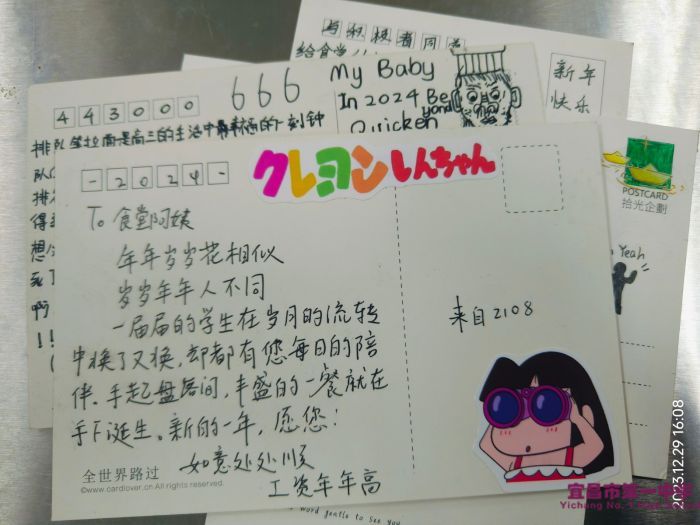 与积极者同
给食堂
新年
快乐
443000
666
My Baby
In 2024 Be
yond
Quicken
排队等拉面是高三的生活中最幸福的一刻钟
POSTCARD
拾光企劃
Yeah
-2024-
クレヨンしんちゃん
To 食堂阿姨
年年岁岁花相似
岁岁年年人不同
一届届的学生在岁月的流转
中换了又换,却都有您每日的陪
伴。手起盘落间,丰盛的一餐就在
手下诞生。新的一年,愿您!
如意处处顺
工资年年高
来自2108
全世界路过
©www.cardlover.cn All rights reserved.
word gentle to See You
2023.12.29 16:08
宜昌市第一中学
Yichang No.1